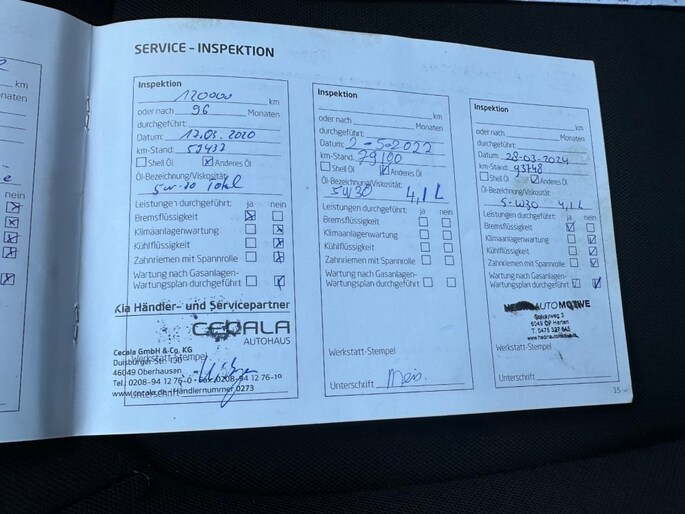 SERVICE – INSPEKTION
Inspektion
120000 km
oder nach 96 Monaten
durchgeführt:
Datum: 12.03.2020
km-Stand: 52432
Shell Öl Anderes Öl
Öl-Bezeichnung/Viskosität:
5w-30
Leistungen durchgeführt: ja nein
Bremsflüssigkeit
Klimaanlagenwartung
Kühlflüssigkeit
Zahnriemen mit Spannrolle
Wartung nach Gasanlagen-
Wartungsplan durchgeführt
Kia Händler- und Servicepartner
CECALA
AUTOHAUS
Cecala GmbH & Co. KG
Duisburger Str. 130
Werkstatt-Stempel
46049 Oberhausen
Tel. 0208-94 12 76-0 - Fax 0208-94 12 76-10
www.cecala.de - Händlernummer 0273
Unterschrift
Inspektion
km
oder nach Monaten
durchgeführt:
Datum: 2-5-2022
km-Stand: 79100
Shell Öl Anderes Öl
Öl-Bezeichnung/Viskosität:
5W30 4,1 L
Leistungen durchgeführt: ja nein
Bremsflüssigkeit
Klimaanlagenwartung
Kühlflüssigkeit
Zahnriemen mit Spannrolle
Wartung nach Gasanlagen-
Wartungsplan durchgeführt
Werkstatt-Stempel
Unterschrift
Inspektion
km
oder nach Monaten
durchgeführt:
Datum: 28-03-2024
km-Stand: 93748
Shell Öl Anderes Öl
Öl-Bezeichnung/Viskosität:
5-W30 4,1 L
Leistungen durchgeführt: ja nein
Bremsflüssigkeit
Klimaanlagenwartung
Kühlflüssigkeit
Zahnriemen mit Spannrolle
Wartung nach Gasanlagen-
Wartungsplan durchgeführt
AUTOMOTIVE
Werkstatt-Stempel
Unterschrift
15
onaten
nein